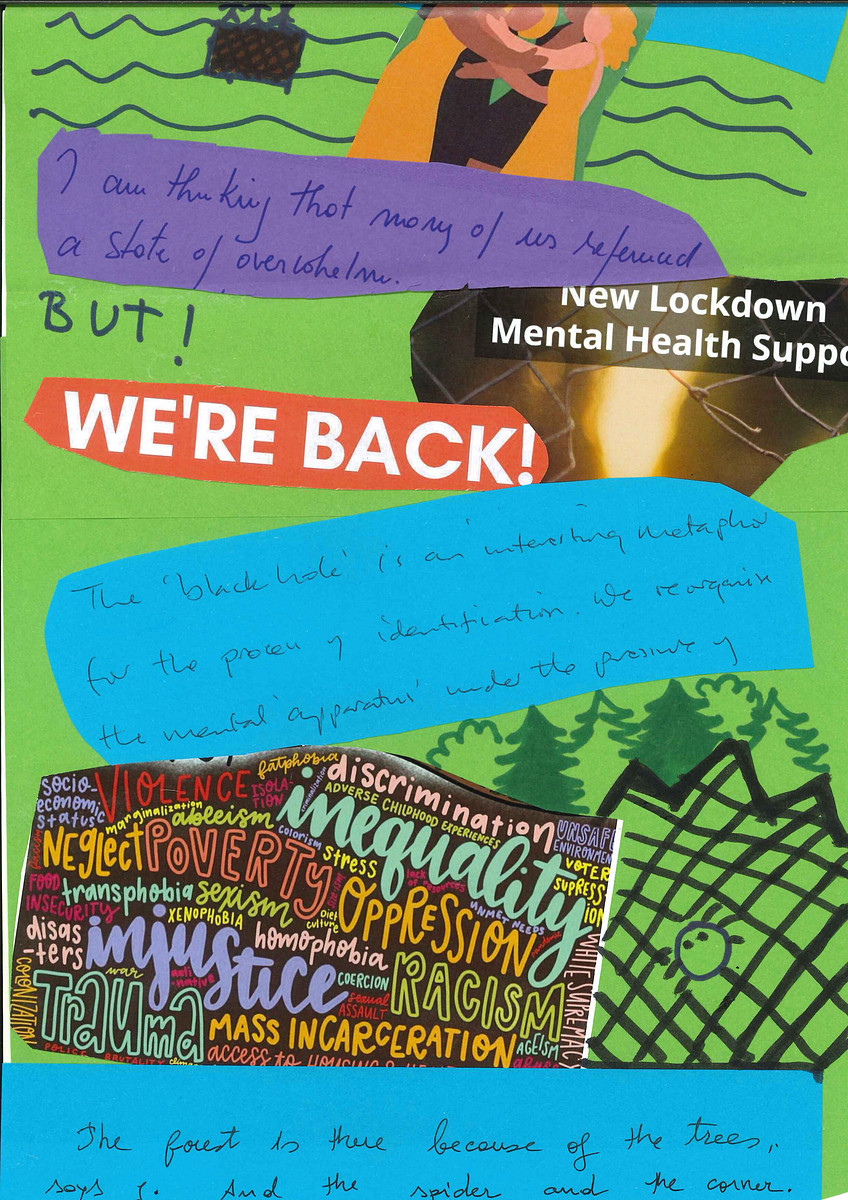 I am thinking that many of us referred
a state of overwhelm.
BUT!
New Lockdown
Mental Health Suppo
WE'RE BACK!
The 'black hole' is an interesting metaphor
for the process of identification. We reorganise
the mental 'apparatus' under the pressure of
socio-
economic
status
VIOLENCE
ISOLA-
TION
fatphobia
criminalization
discrimination
ADVERSE CHILDHOOD EXPERIENCES
marginalization
ableism
inequality
colorism
UNSAFE
ENVIRONMEN
racism
NEGLECT
POVERTY
stress
lack
of resources
VOTER
SUPRESS
ION
FOOD
INSECURITY
transphobia
sexism
XENOPHOBIA
diet
culture
OPPRESSION
UNMET NEEDS
disas
-ters
injustice
homophobia
war
anti
-native
COERCION
sexual
ASSAULT
RACISM
WHITE SUPREMACY
COLONIZATION
Trauma
MASS INCARCERATION
AGEISM
abuse
POLICE BRUTALITY
access to HOUSING &
The forest is there because of the trees,
says J. And the spider and the corner.